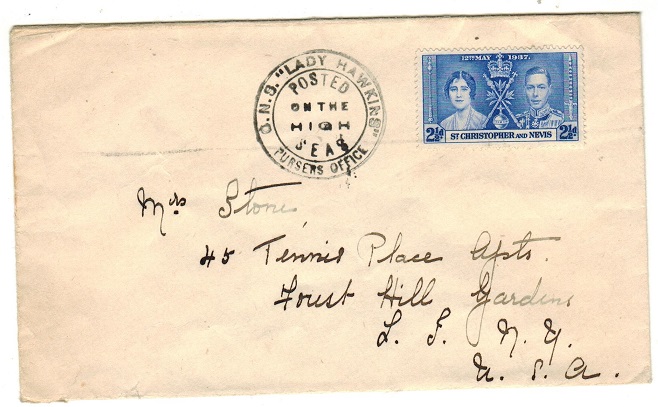 C.N.S. "LADY HAWKINS"
POSTED
ON THE
HIGH
SEAS
PURSERS OFFICE
12TH MAY 1937.
2½d
ST CHRISTOPHER AND NEVIS
2½d
Mrs Stone
45 Tennis Place Apts.
Forest Hill Gardens
L. I. N. Y.
U. S. A.